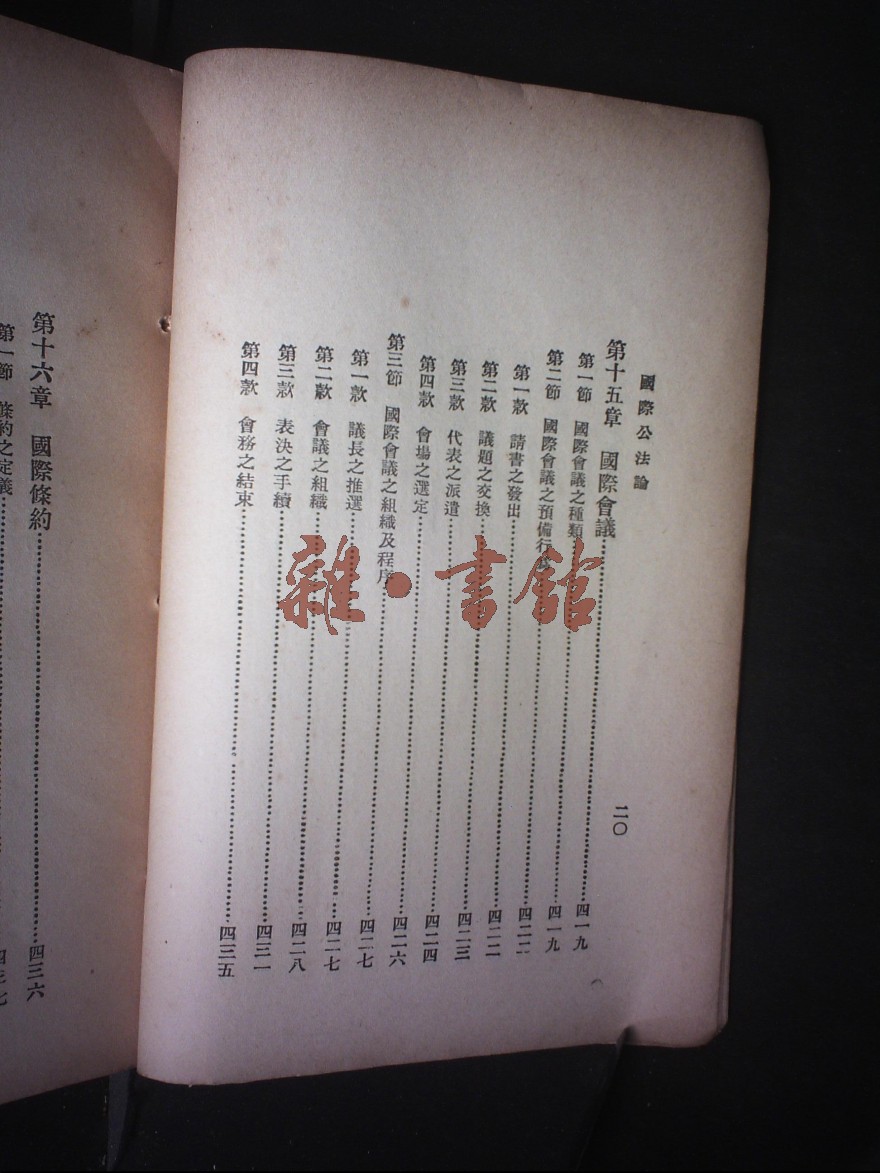 國際公法論
二〇
第十五章 國際會議……四一九
第一節 國際會議之種類……四一九
第二節 國際會議之預備行……四二二
第一款 請書之發出……四二二
第二款 議題之交換……四二三
第三款 代表之派遣……四二四
第四款 會場之選定……四二六
第三節 國際會議之組織及程序……四二七
第一款 議長之推選……四二七
第二款 會議之組織……四二八
第三款 表決之手續……四三一
第四款 會務之結束……四三五
第十六章 國際條約……四三六
第一節 條約之定義……四三七
雜·書館